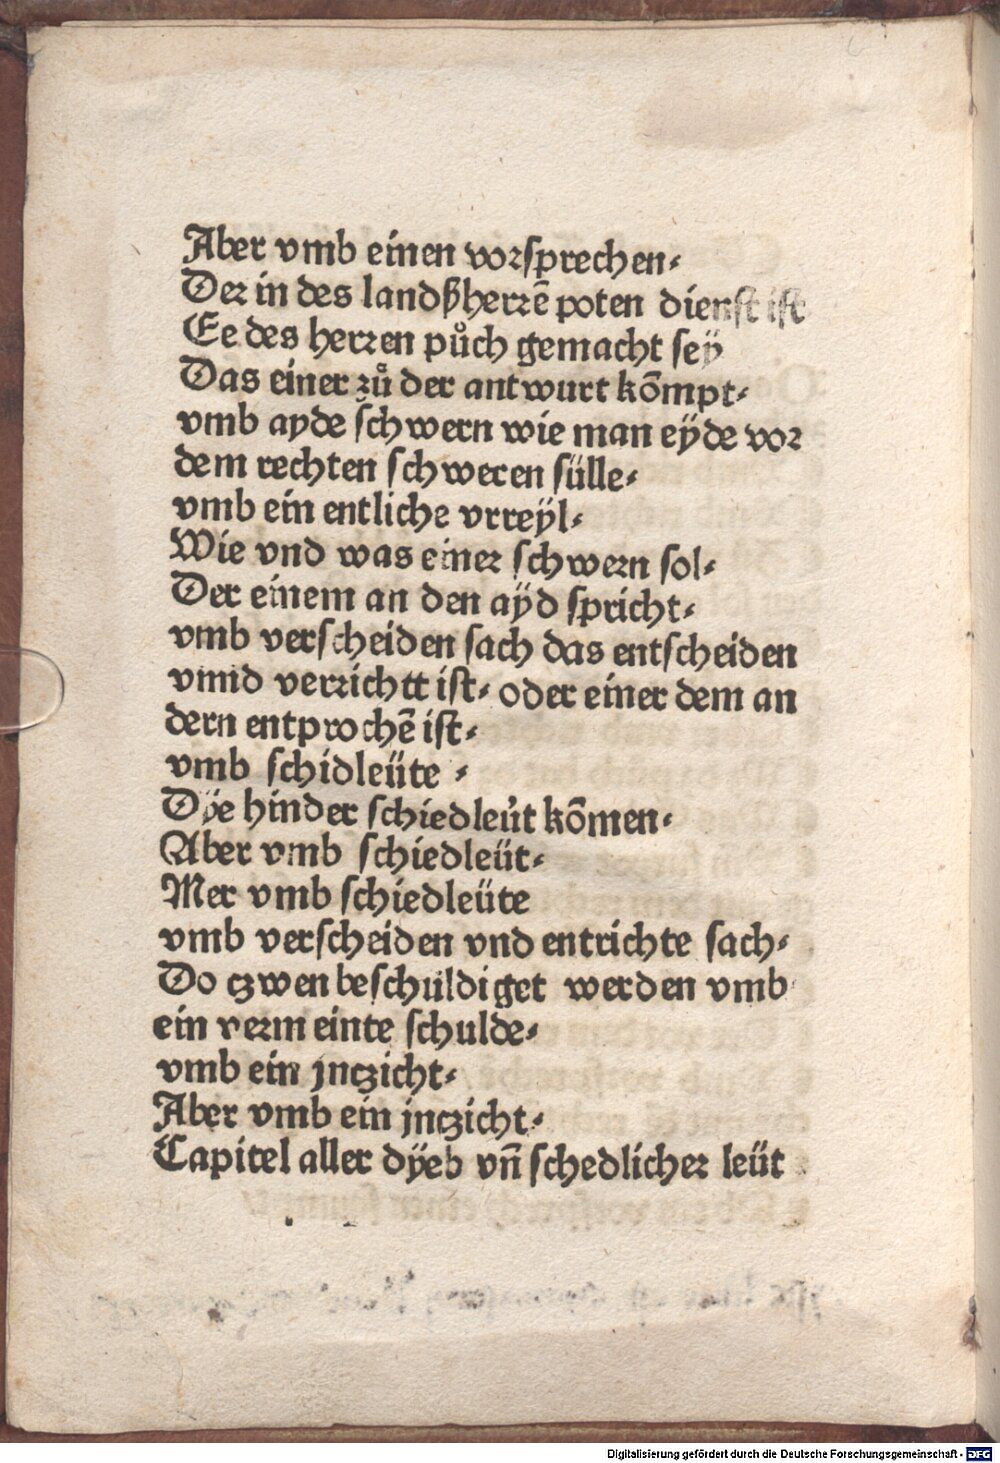 Aber vmb einen vorſprechen⸗
Der in des landßherrē poten dienſt iſt
Ee des herren půch gemacht ſeÿ
Das einer zů der antwurt kōmpt⸗
vmb ayde ſchwern wie man eÿde vor
dem rechten ſchweren ſülle⸗
vmb ein entliche vrteÿl⸗
Wie vnd was einer ſchwern ſol⸗
Der einem an den aÿd ſpricht⸗
vmb verſcheiden ſach das entſcheiden
vnnd verrichtt iſt⸗ oder einer dem an
dern entprochē iſt⸗
vmb ſchidleüte ⸗
Dÿe hinder ſchiedleüt kōmen⸗
Aber vmb ſchiedleüt⸗
Mer vmb ſchiedleüte
vmb verſcheiden vnd entrichte ſach⸗
Do czwen beſchuldiget werden vmb
ein vermeinte ſchulde⸗
vmb ein jnczicht⸗
Aber vmb ein jnczicht⸗
Capitel aller dÿeb vn̄ ſchedlicher leüt
Digitalisierung gefördert durch die Deutsche Forschungsgemeinschaft - DFG